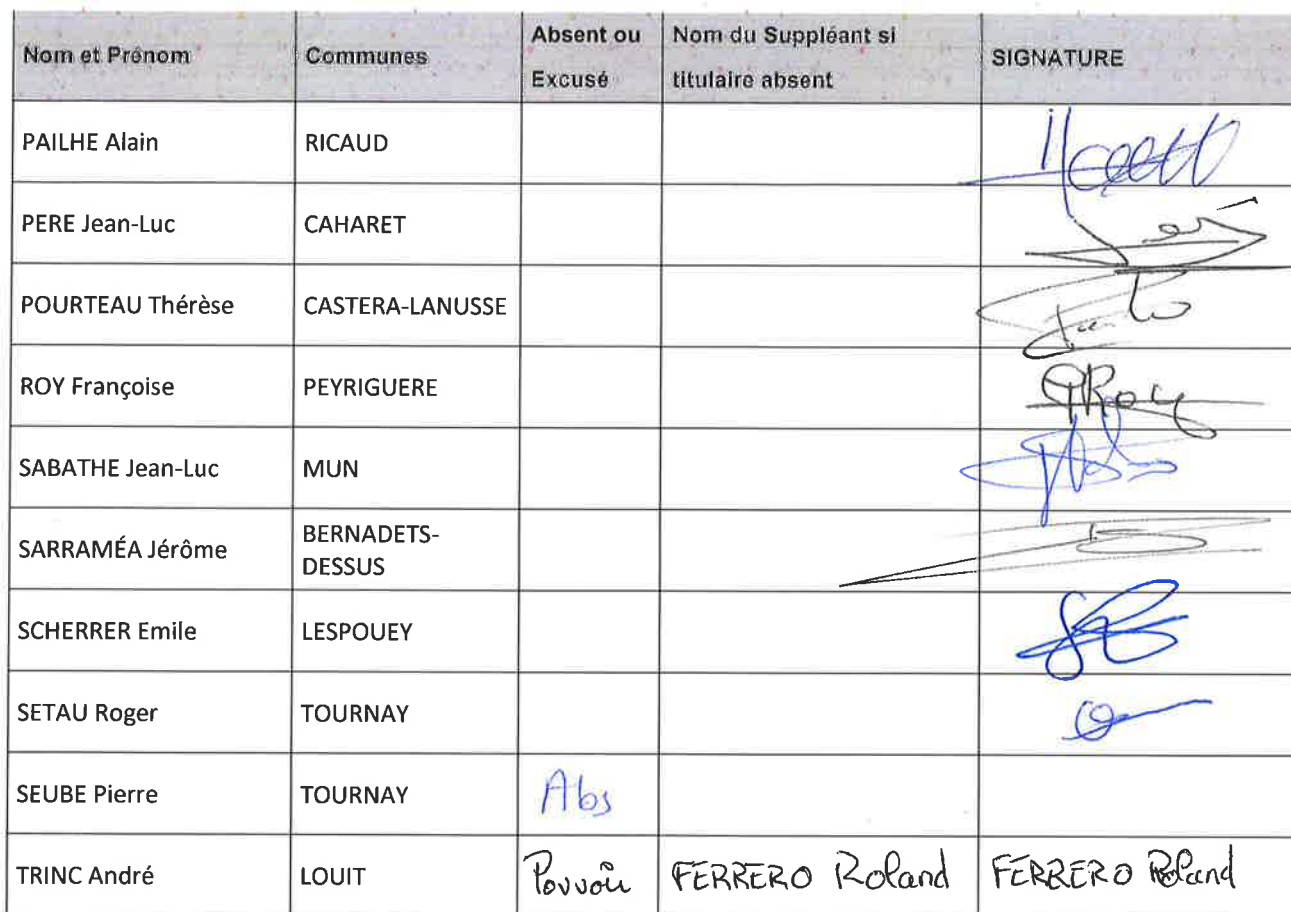 Nom et Prénom Communes Absent ou Excusé Nom du Suppléant si titulaire absent SIGNATURE
PAILHE Alain RICAUD
PERE Jean-Luc CAHARET
POURTEAU Thérèse CASTERA-LANUSSE
ROY Françoise PEYRIGUERE
SABATHE Jean-Luc MUN
SARRAMÉA Jérôme BERNADETS-DESSUS
SCHERRER Emile LESPOUEY
SETAU Roger TOURNAY
SEUBE Pierre TOURNAY Abs
TRINC André LOUIT Pouvoir FERRERO Roland FERRERO Roland